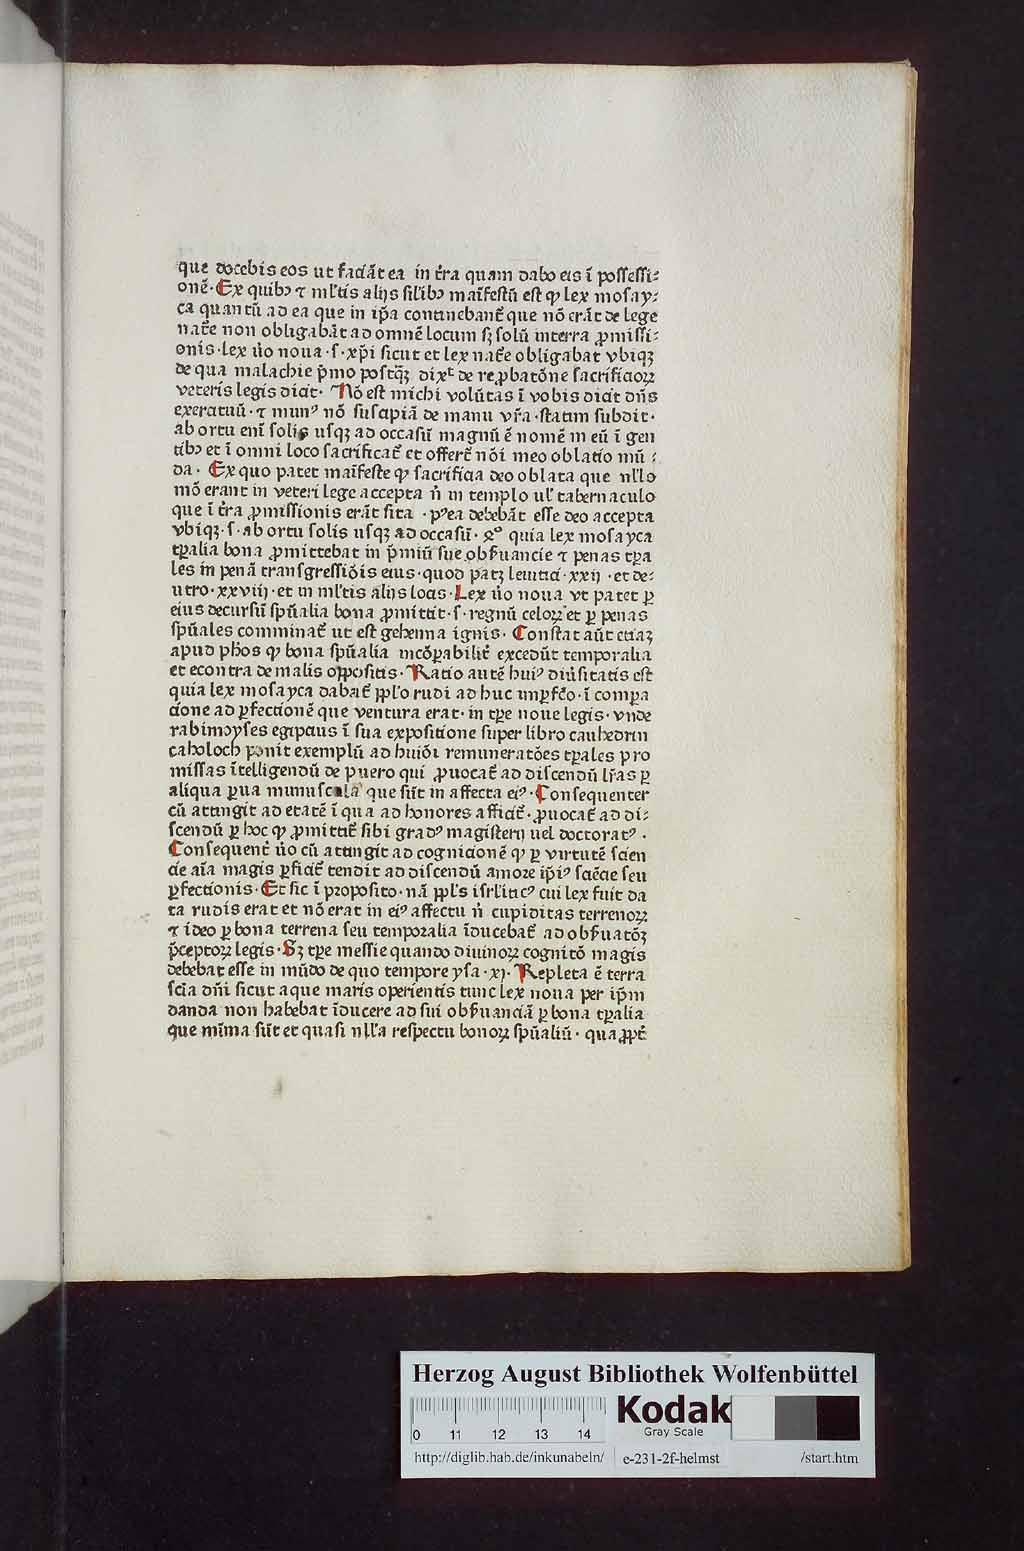 que docebis eos ut faciāt ea in t̄ra quam dabo eis ī possessi⸗
onē· Ex quibꝰ ⁊ ml̄tis alijs sil̄ibꝰ maīfestū est ꝙ lex mosay⸗
ca quantū ad ea que in ip̄a continebant̄ que nō erāt de lege
nat̄e non obligabāt ad omnē locum sꝫ solū in terra ꝓmissi⸗
onis· lex ūo noua ·s· xp̄i sicut et lex nat̄e obligabat vbiqꝫ
de qua malachie p̄mo postqꝫ̄ dixᵗ de reꝓbatōne sacrificioꝝ
veteris legis dicit· Nō est michi volūtas ī vobis dicit dn̄s
exercituū· ⁊ munꝰ nō suscipiā de manu vr̄a· statim subdit·
ab ortu enī solis usqꝫ ad occasū magnū ē nomē m eū ī gen
tibꝰ et ī omni loco sacrificat̄ et offert̄ nōi meo oblatio mū ⸗
da· Ex quo patet maīfeste ꝙ sacrificia deo oblata que nl̄lo
mō erant in veteri lege accepta n̄ in templo ul̄ tabernaculo
que ī t̄ra ꝓmissionis erāt sita · pꝰea debebāt esse deo accepta
vbiqꝫ ·s· ab ortu solis usqꝫ ad occasū· 2° quia lex mosayca
tꝑalia bona ꝓmittebat in p̄miū sue obẜuancie ⁊ penas tꝑa
les in penā transgressiōis eius· quod patꝫ leuitici· xxij · et de⸗
utro· xxviij· et in ml̄tis alijs locis· Lex ūo noua vt patet ꝑ
eius decursū sp̄ualia bona ꝓmittit ·s· regnū celoꝝ et ꝑ penas
sp̄uales comminat̄ ut est gehenna ignis· Constat aūt etiaꝫ
apud ph̄os ꝙ bona sp̄ualia incōꝑabilit̄ excedūt temporalia
et econtra de malis oppositis· Ratio autē huiꝰ diūsitatis est
quia lex mosayca dabat̄ ppl̄o rudi ad huc imꝑfc̄o· ī compa
cione ad ꝑfectionē que ventura erat· in tꝑe noue legis· vnde
rabimoyses egipcius ī sua expositione super libro cauhedrin
caholoch ponit exemplū ad huiōi remuneratōes tꝑales pro
missas ītelligendū de puero qui ꝓuocat̄ ad discendū lr̄as ꝑ
aliqua ꝑua munuscula que sūt in affectu eiꝰ· Consequenter
cū attingit ad etatē ī qua ad honores afficit̄· ꝓuocat̄ ad di⸗
scendū ꝑ hoc ꝙ ꝓmittit̄ sibi gradꝰ magisterij uel doctoratꝰ .
Consequent̄ ūo cū attingit ad cognicionē ꝙ ꝑ virtutē scien
cie aīa magis ꝑficit̄ tendit ad discendū amore ip̄iꝰ sciēcie seu
ꝑfectionis· Et sic ī proposito· nā ppl̄s isrl̄iticꝰ cui lex fuit da
ta rudis erat et nō erat in eiꝰ affectu n̄ cupiditas terrenoꝝ
⁊ ideo ꝑ bona terrena seu temporalia īducebat̄ ad obẜuatōꝫ
p̄ceptoꝝ legis· Sꝫ tꝑe messie quando diuinoꝝ cognitō magis
debebat esse in mūdo de quo tempore ysa· xj· Repleta ē terra
scīa dn̄i sicut aque maris operientis tunc lex noua per ip̄m
danda non habebat īducere ad sui obẜuanciā ꝑ bona tꝑalia
que mīma sūt et quasi nl̄l̄a respectu bonoꝝ sp̄ualiū· qua ꝓpt̄
Herzog August Bibliothek Wolfenbüttel
0 11 12 13 14
Kodak
Gray Scale
http://diglib.hab.de/inkunabeln/ e-231-2f-helmst /start.htm